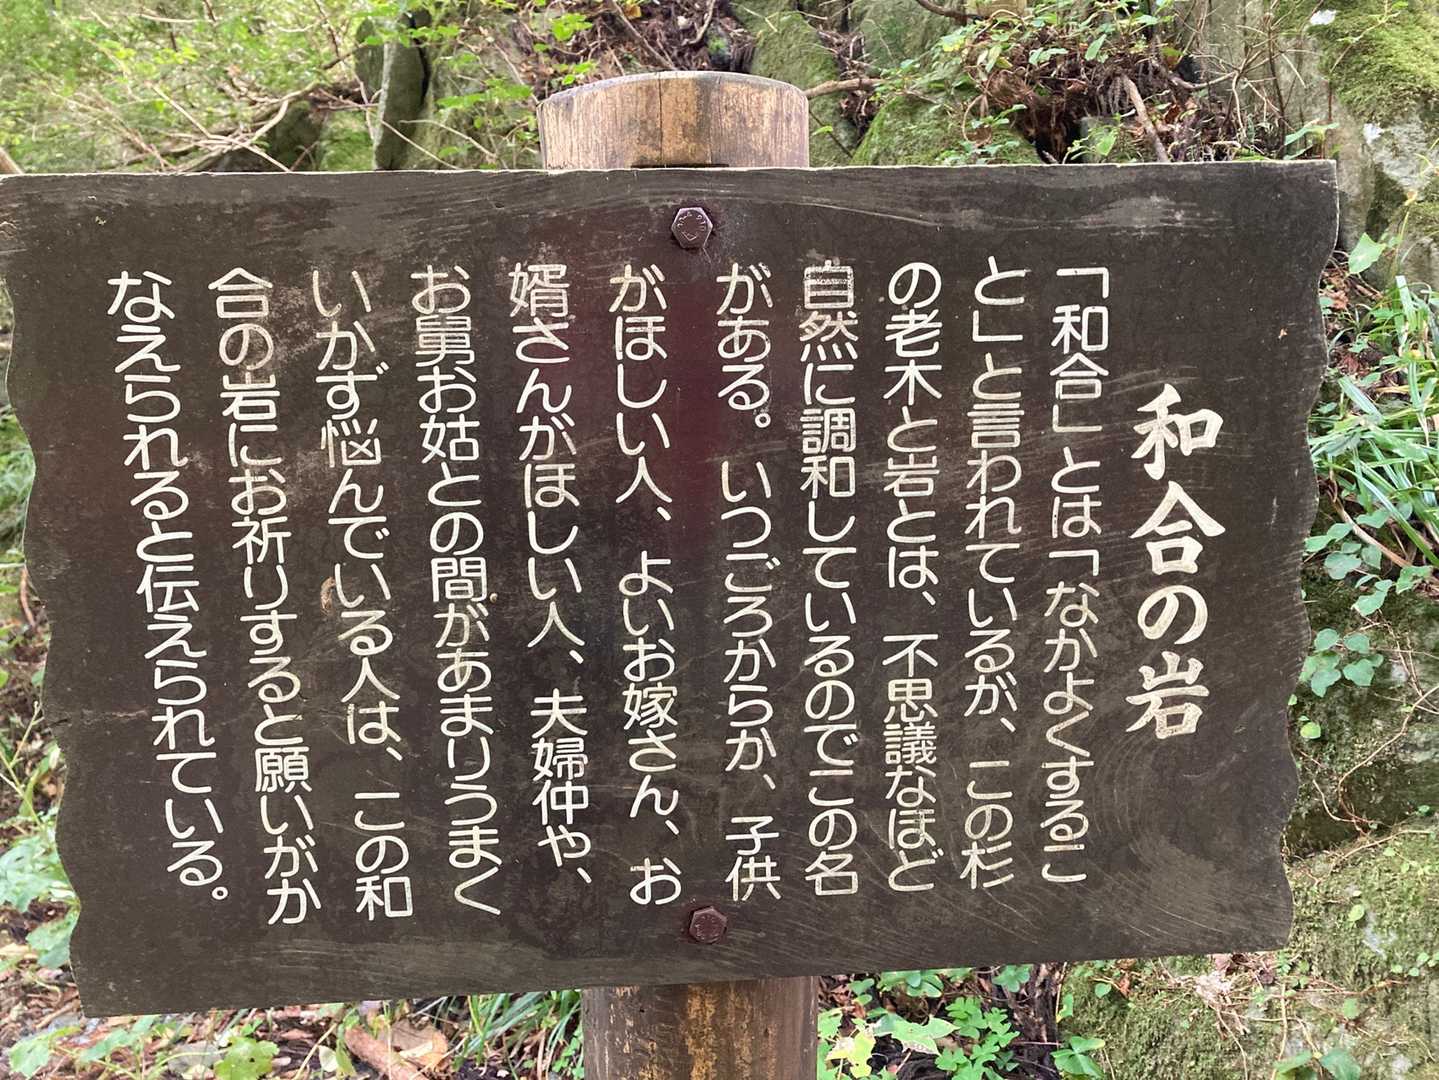 和合の岩
「和合」とは「なかよくするこ
と」と言われているが、この杉
の老木と岩とは、不思議なほど
自然に調和しているのでこの名
がある。いつごろからか、子供
がほしい人、よいお嫁さん、お
婿さんがほしい人、夫婦仲や、
お舅お姑との間があまりうまく
いかず悩んでいる人は、この和
合の岩にお祈りすると願いがか
なえられると伝えられている。